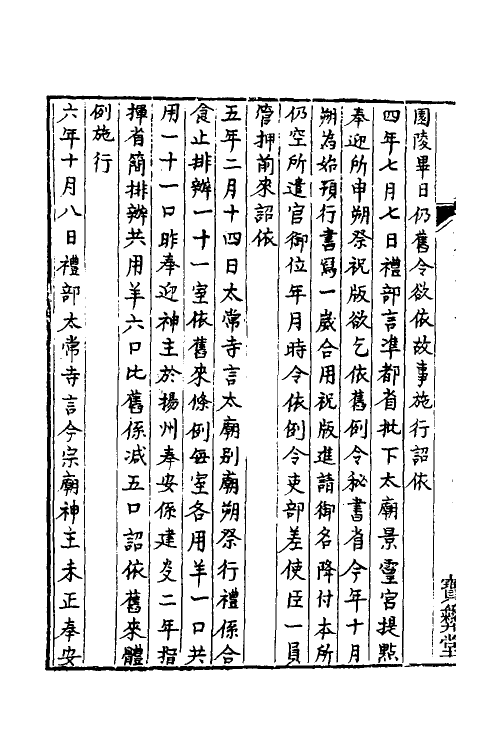 園陵畢日仍舊今欲依故事施行詔依
四年七月七日禮部言準都省批下太廟景靈宮提點
奉迎所申朔祭祝版欲乞依舊例令秘書省今年十月
朔為始預行書寫一歲合用祝版進請御名降付本所
仍空所遣官御位年月時令依例令吏部差使臣一員
管押前來詔依
五年二月十四日太常寺言太廟別廟朔祭行禮係合
食止排辦一十一室依舊來條例每室各用羊一口共
用一十一口昨奉迎神主於揚州奉安係建炎二年指
揮省簡排辦共用羊六口比舊係減五口詔依舊來體
例施行
六年十月八日禮部太常寺言今宗廟神主未正奉安
寶彝堂